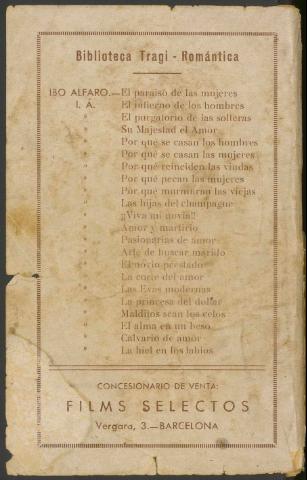 Biblioteca Tragi - Romántica
IBO ALFARO.—El paraíso de las mujeres
I. A. El infierno de los hombres
" El purgatorio de las solteras
" Su Majestad el Amor
" Por qué se casan los hombres
" Por qué se casan las mujeres
" Por qué reinciden las viudas
" Por qué pecan las mujeres
" Por qué murmuran las viejas
" Las hijas del champagne
" ¡Viva mi novia!!
" Amor y martirio
" Pasionarias de amor
" Arte de buscar marido
" El novio prestado
" La corte del amor
" Las Evas modernas
" La princesa del dollar
" Malditos sean los celos
" El alma en un beso
" Calvario de amor
" La hiel en los labios
CONCESIONARIO DE VENTA:
FILMS SELECTOS
Vergara, 3.—BARCELONA